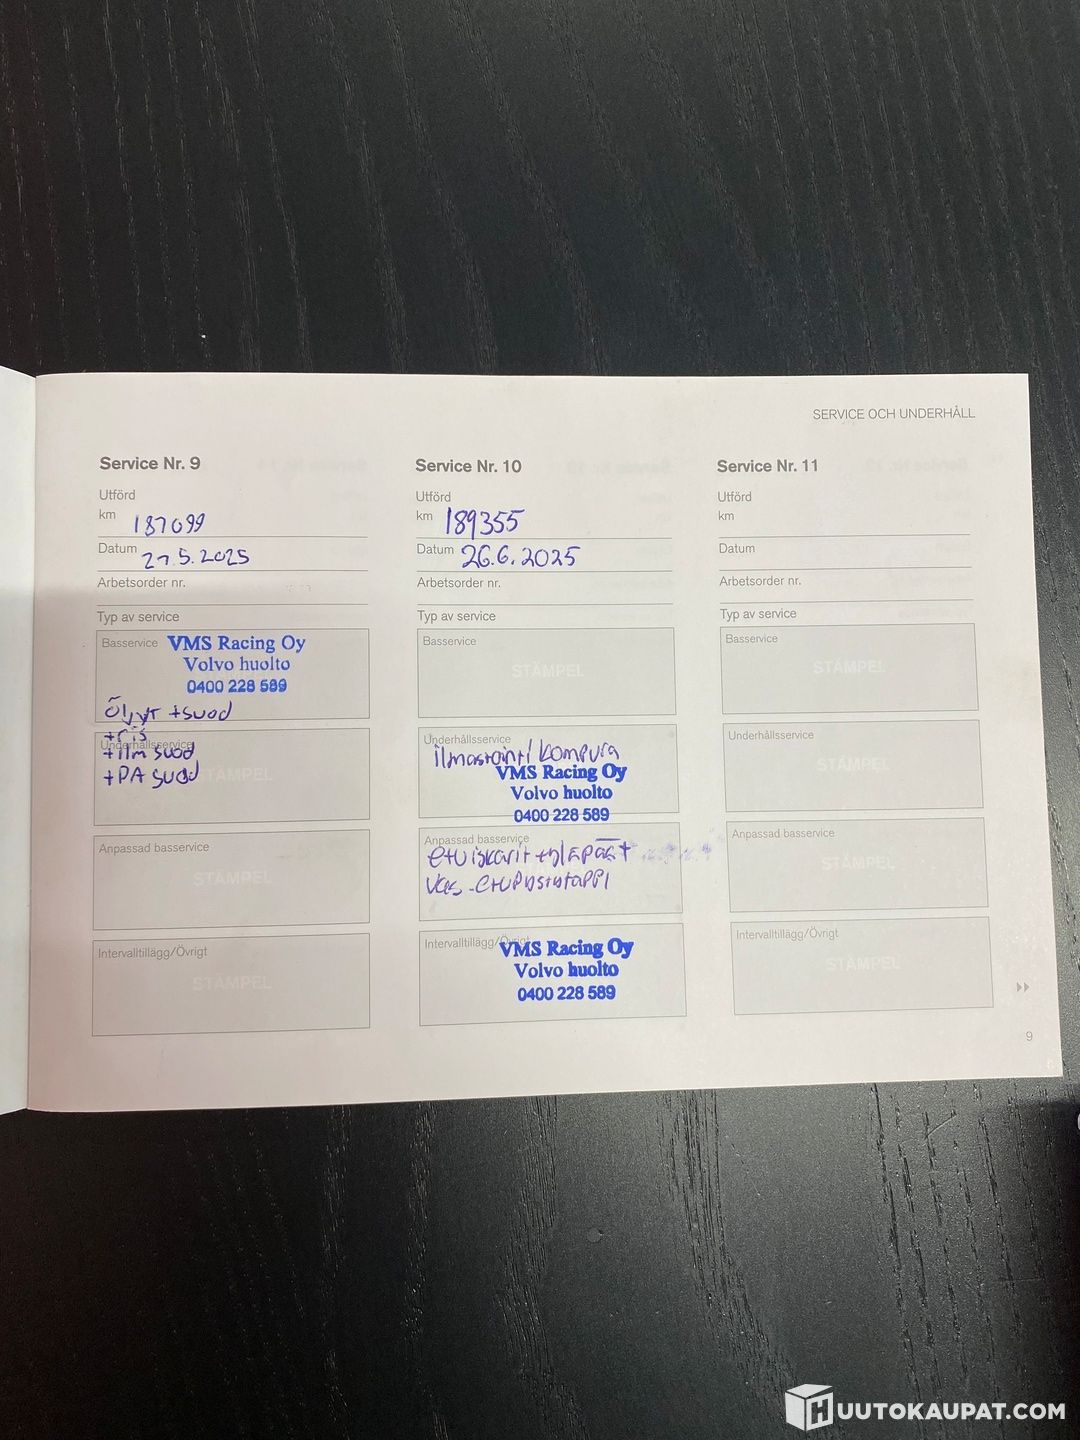 SERVICE OCH UNDERHÅLL
Service Nr. 9
Utförd
km 187099
Datum 27.5.2025
Arbetsorder nr.
Typ av service
Basservice
VMS Racing Oy
Volvo huolto
0400 228 589
Öljyt +suod
+ris
Underhållsservice
+ilm suod
+PA suod
STÄMPEL
Anpassad basservice
STÄMPEL
Intervalltillägg/Övrigt
STÄMPEL
Service Nr. 10
Utförd
km 189355
Datum 26.6.2025
Arbetsorder nr.
Typ av service
Basservice
STÄMPEL
Underhållsservice
ilmastointi kompura
VMS Racing Oy
Volvo huolto
0400 228 589
Anpassad basservice
etuiskarit +yläpäät
vas.
Intervalltillägg/Övrigt
VMS Racing Oy
Volvo huolto
0400 228 589
Service Nr. 11
Utförd
km
Datum
Arbetsorder nr.
Typ av service
Basservice
STÄMPEL
Underhållsservice
STÄMPEL
Anpassad basservice
STÄMPEL
Intervalltillägg/Övrigt
STÄMPEL
9
HUUTOKAUPAT.COM